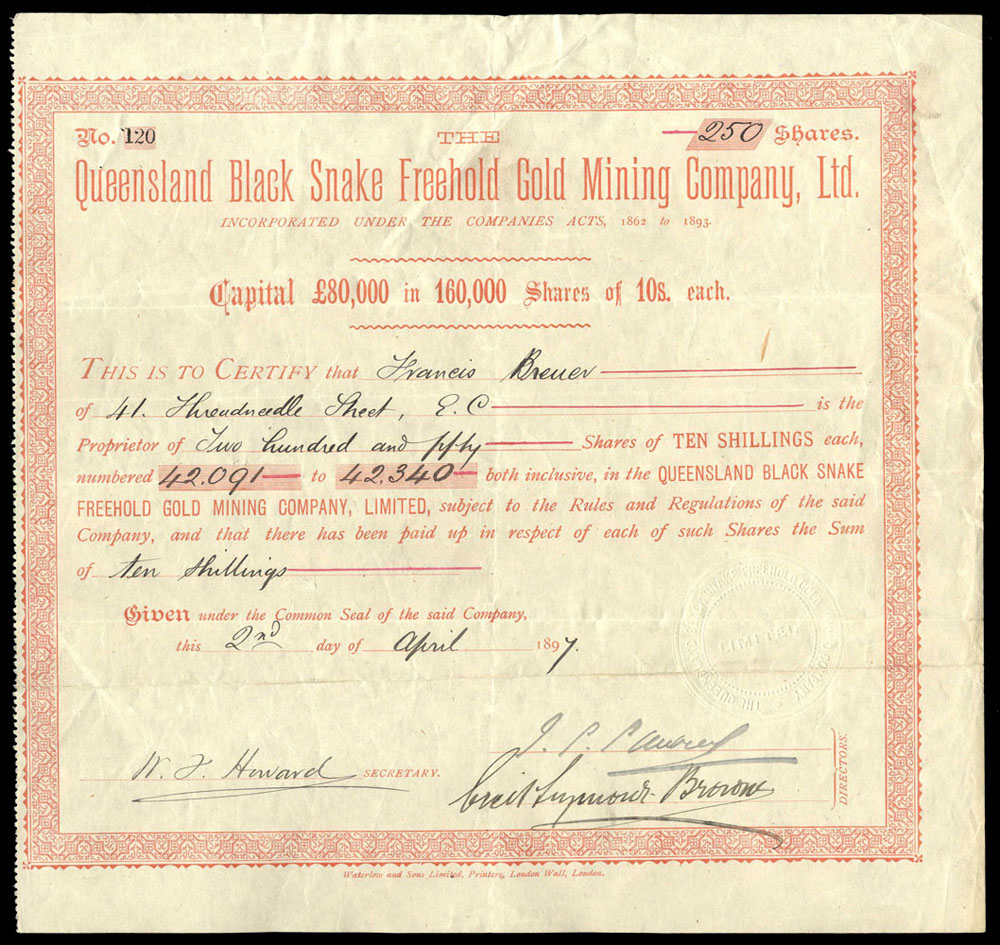 No. 120
THE
250 Shares.
Queensland Black Snake Freehold Gold Mining Company, Ltd.
INCORPORATED UNDER THE COMPANIES ACTS, 1862 to 1893.
Capital £80,000 in 160,000 Shares of 10s. each.
THIS IS TO CERTIFY that Francis Breuer
of 41. Threadneedle Street, E.C is the
Proprietor of Two hundred and fifty Shares of TEN SHILLINGS each,
numbered 42.091 to 42.340 both inclusive, in the QUEENSLAND BLACK SNAKE
FREEHOLD GOLD MINING COMPANY, LIMITED, subject to the Rules and Regulations of the said
Company, and that there has been paid up in respect of each of such Shares the Sum
of ten shillings
Given under the Common Seal of the said Company,
this 2nd day of April 1897.
LIMITED
J. P.
W. F. Howard SECRETARY.
Cecil Seymour Browne
DIRECTORS.
Waterlow and Sons Limited, Printers, London Wall, London.